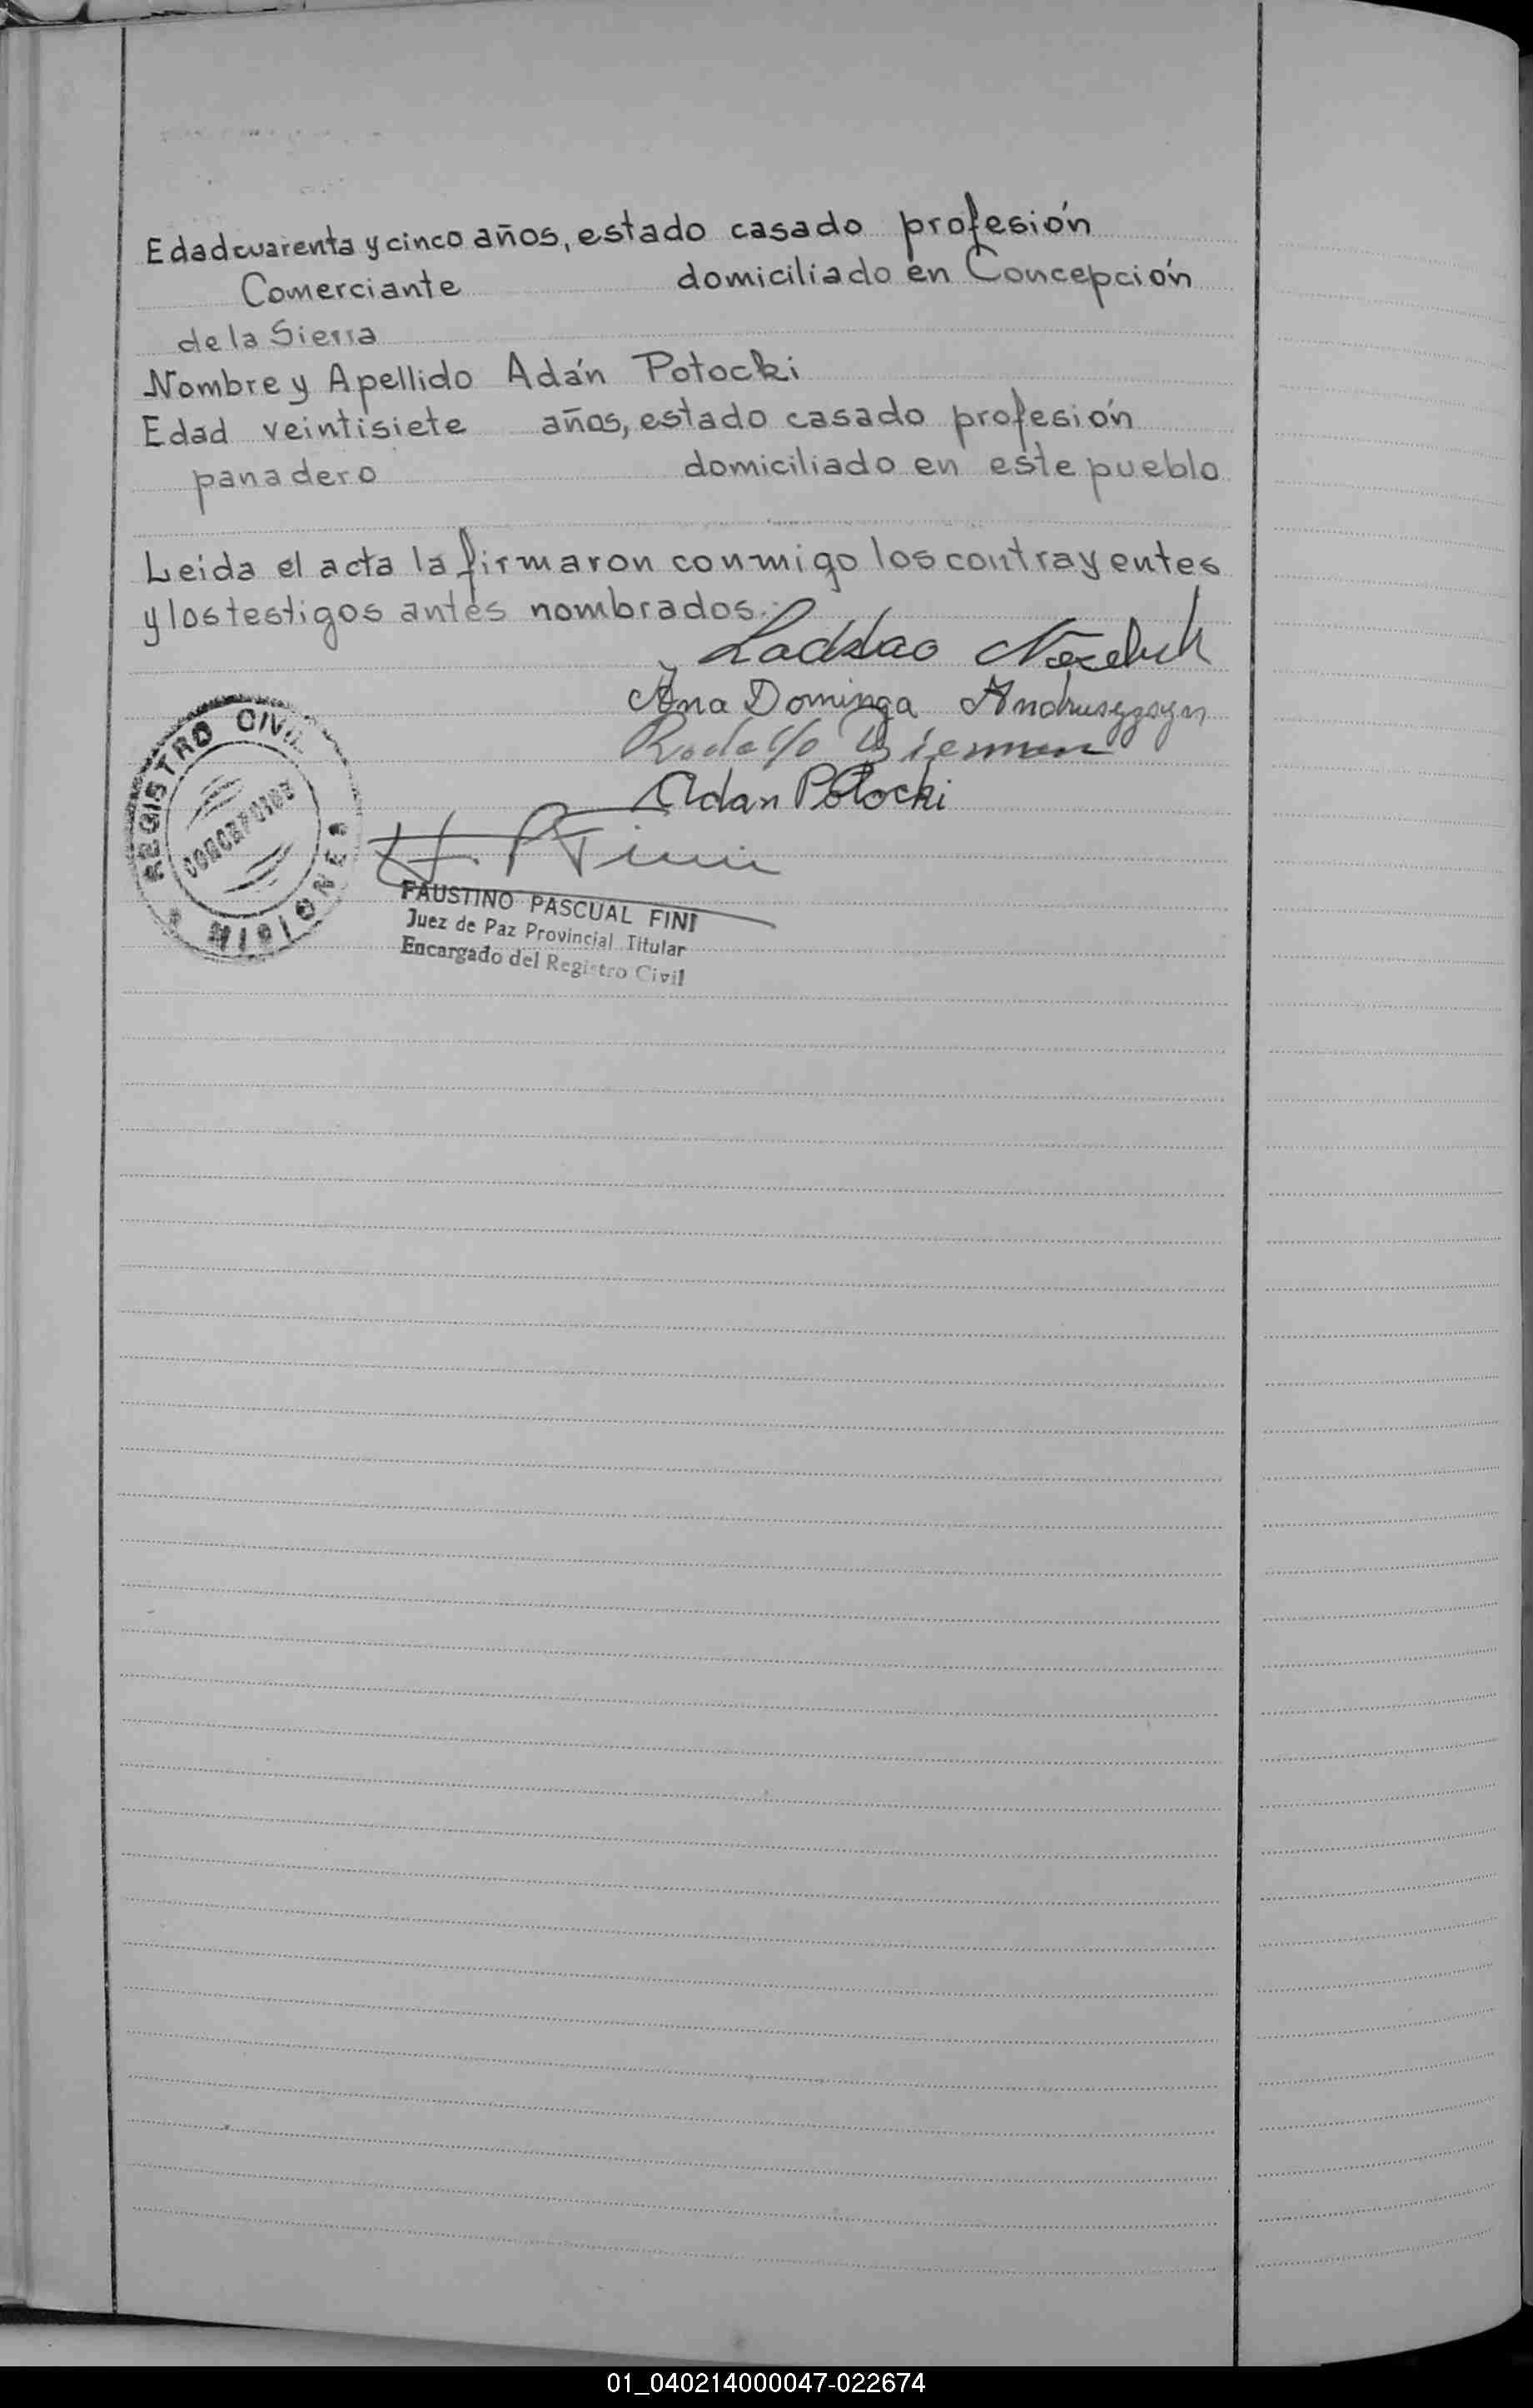 Edad cuarenta y cinco años, estado casado profesión
Comerciante domiciliado en Concepción
de la Sierra
Nombre y Apellido Adán Potocki
Edad veintisiete años, estado casado profesión
panadero domiciliado en este pueblo
Leida el acta la firmaron conmigo los contrayentes
y los testigos antes nombrados.
Ladislao
Ana Dominga
Rodolfo
Adan Potocki
REGISTRO CIVIL
CONCEPCION
MISIONES
FAUSTINO PASCUAL FINI
Juez de Paz Provincial Titular
Encargado del Registro Civil
01_040214000047-022674